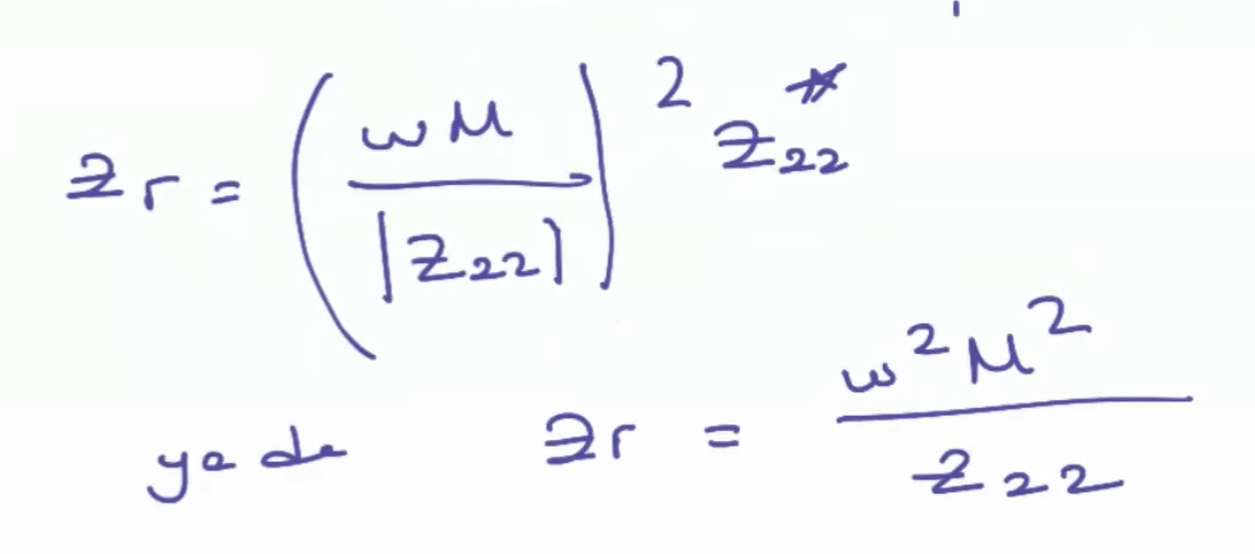 Zr = (ωM / |Z22|)^2 Z22*
ya da Zr = ω^2 M^2 / Z22